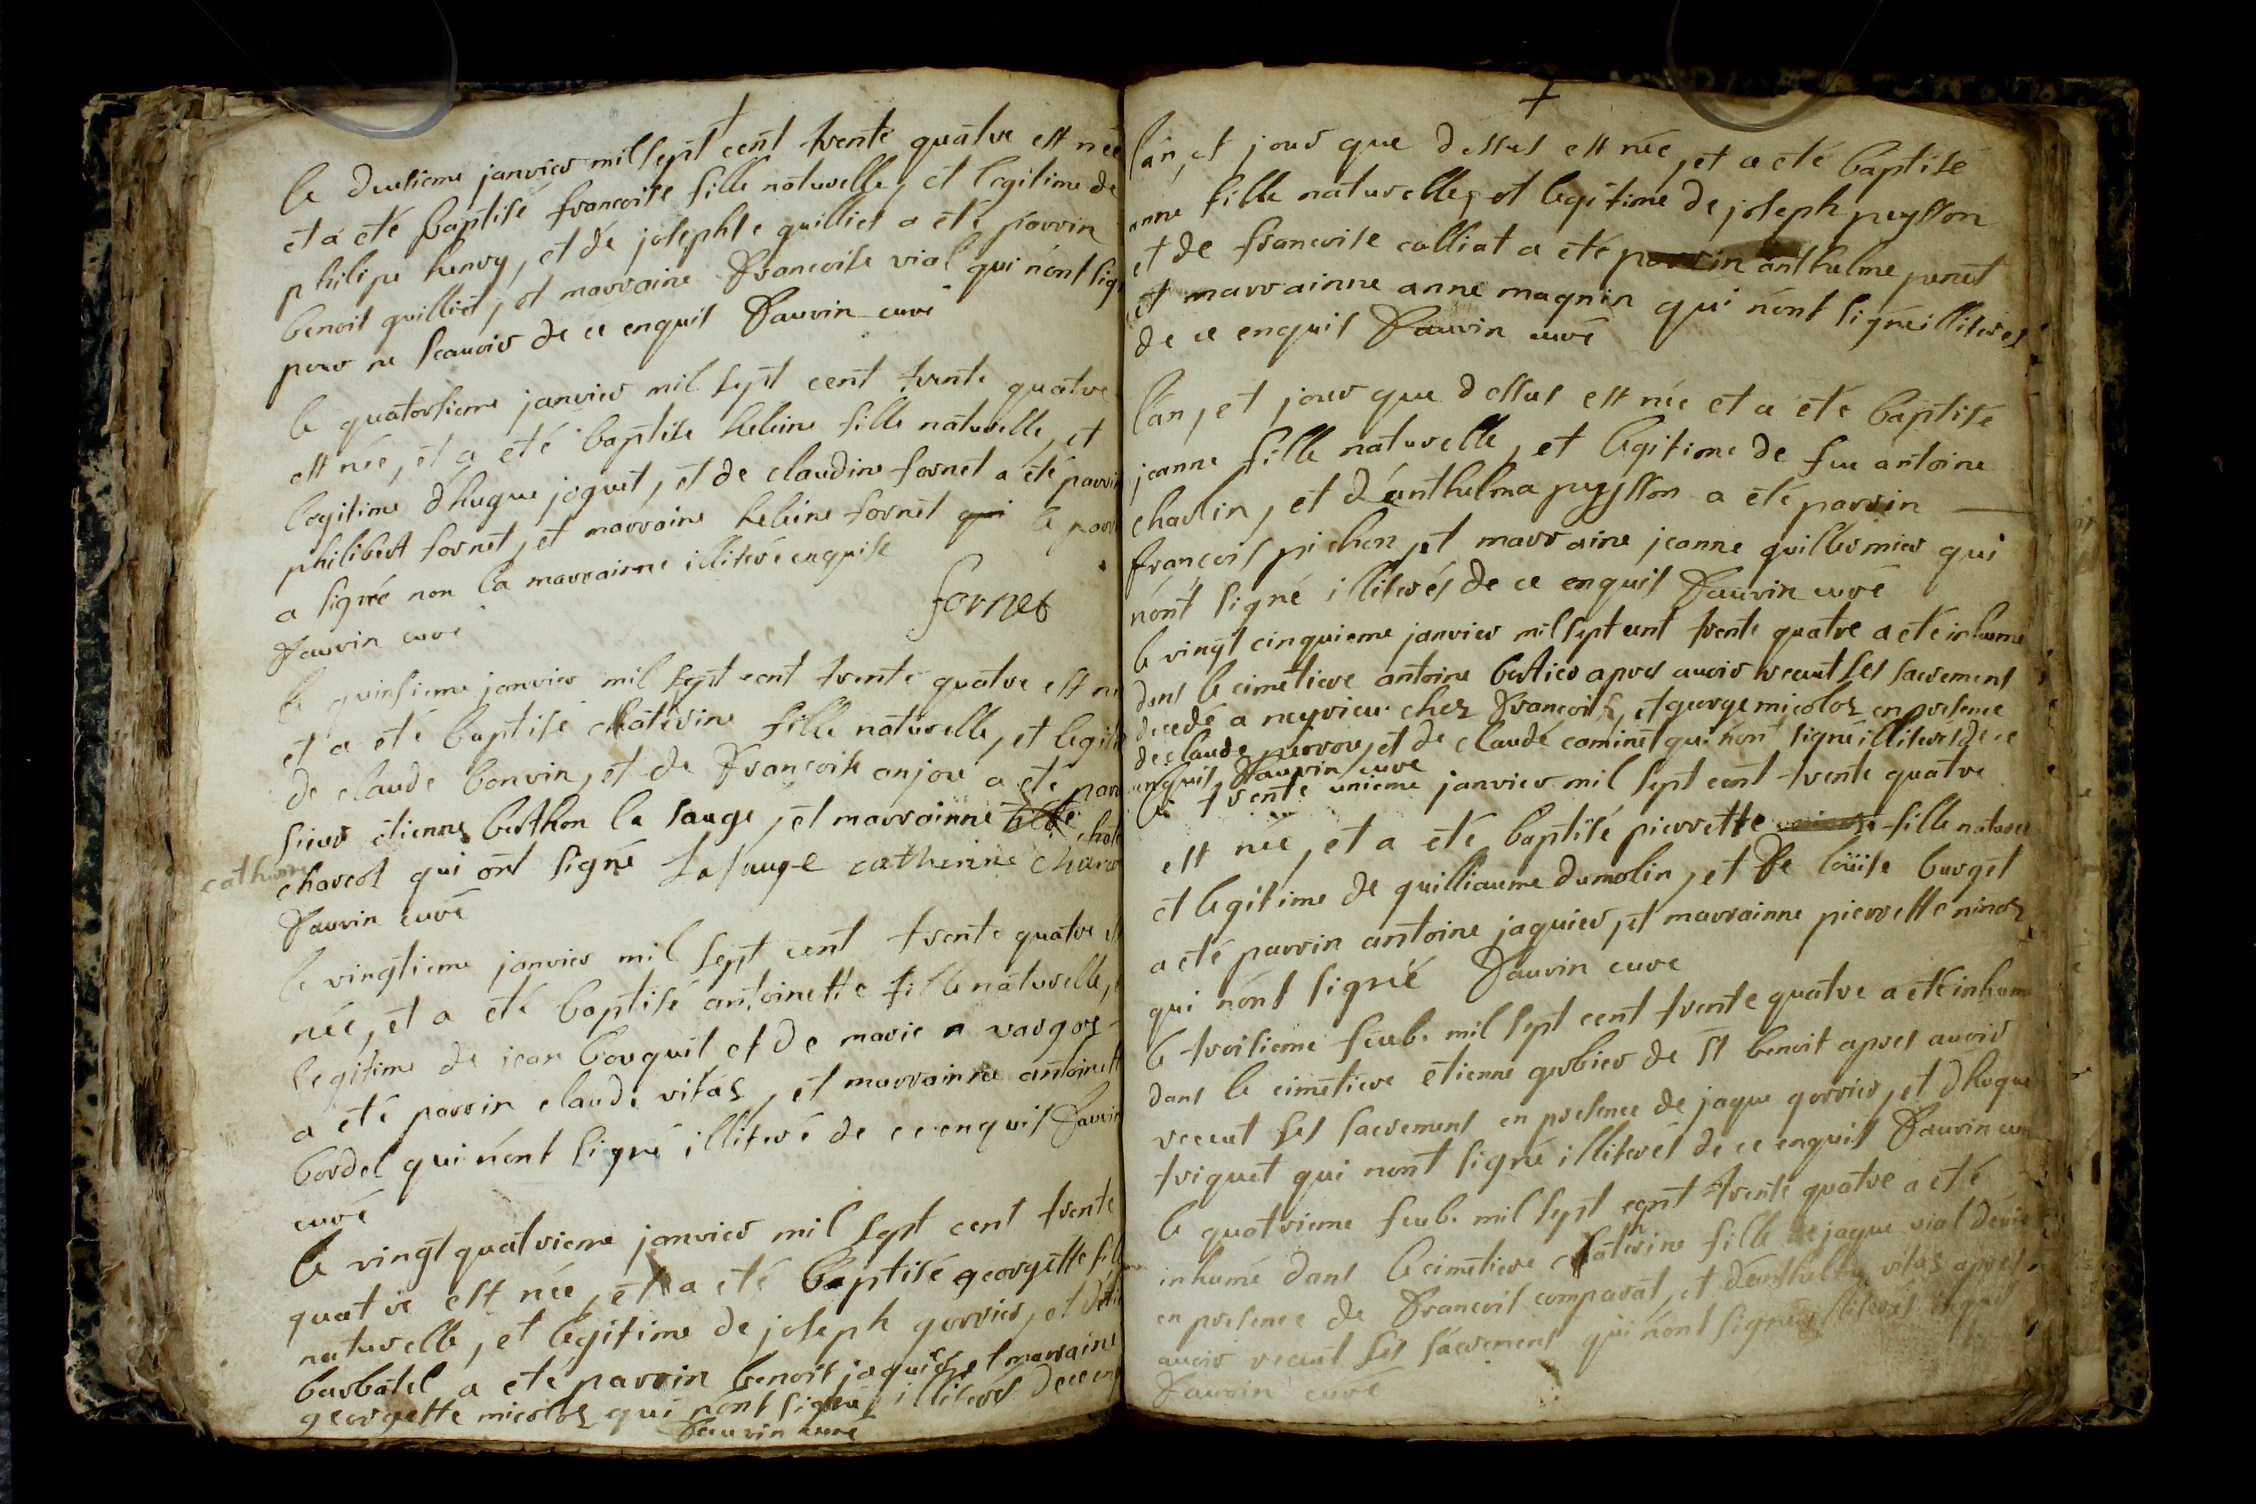 le deusieme janvier mil sept cent trente quatre est née
et a eté baptisé francoise fille naturelle, et legitime de
philipe henry, et de josephte quilliet a eté parrin
benoit quilliet, et marraine francoise vial qui n'ont sig
pour ne scauoir de ce enquis fauvin curé
le quatorsieme janvier mil sept cent trente quatre
est née, et a eté baptisé heleine fille naturelle, et
legitime d'hugue joguet, et de claudine fornet a eté parri
philibert fornet, et marraine heleine fornet qui le parr
a signé non la marrainne illiteré enquise
fornet
fauvin curé
le quinsieme janvier mil sept cent trente quatre est né
et a eté baptisé chaterine fille naturelle, et legit
de claude bonvin, et de francoise anjou a eté parr
sieur etienne berthon la sauge, et marrainne
catherine
charcot qui ont signé La saug-e catherine charco
fauvin curé
le vingtieme janvier mil sept cent trente quatre
née, et a eté baptisé antoinette fille naturelle,
legitime de jean bouquil et de marie vargoz
a eté parrin claude vitaz, et marrainne antoinett
bordel qui n'ont signé illiteré de ce enquis fauvin
curé
le vingt quatrieme janvier mil sept cent trente
quatre est née, et a eté baptisé georgette fil
naturelle, et legitime de joseph gorrier, et
barbatel a eté parrin benoit jaquier, et marraine
georgette micoloz qui n'ont signé illiterés de ce enq
fauvin curé
l'an, et jour que dessus est née, et a eté baptisé
anne fille naturelle, et legitime de joseph peysson
et de francoise calliat a eté parrin anthelme peret
et marrainne anne magnin qui n'ont signé illiterés
de ce enquis fauvin curé
l'an, et jour que dessus est née et a eté baptisé
jeanne fille naturelle, et legitime de feu antoine
charlin, et d'anthelma peysson a eté parrin
francois pichon, et marraine jeanne guillermier qui
n'ont signé illiterés de ce enquis fauvin curé
le vingt cinquieme janvier mil sept cent trente quatre a eté inhumé
dans le cimetiere antoine bertier apres auoir receut ses sacrement
decedé a neyrieu chez francois, et george micoloz en presence
de claude perrou, et de claude cominet qui n'ont signé illiterés de ce
enquis fauvin curé
le trente unieme janvier mil sept cent trente quatre
est née, et a eté baptisé pierrette fille naturelle
et legitime de guilliaume dumolin, et de loüise burget
a eté parrin antoine jaquier, et marrainne pierrette ninoz
qui n'ont signé fauvin curé
le troisieme feub. mil sept cent trente quatre a eté inhumé
dans le cimetiere etienne gerbier de st benoit apres auoir
receut ses sacrement en presence de jaque gorrier, et d'hugue
triquet qui n'ont signé illiterés de ce enquis fauvin curé
le quatrieme feub. mil sept cent trente quatre a eté
inhumé dans le cimetiere chatherine fille de jaque vial
en presence de francois comparat, et d'anthelme vitaz apres
auoir receut ses sacrement qui n'ont signé illiterés enquis
fauvin curé